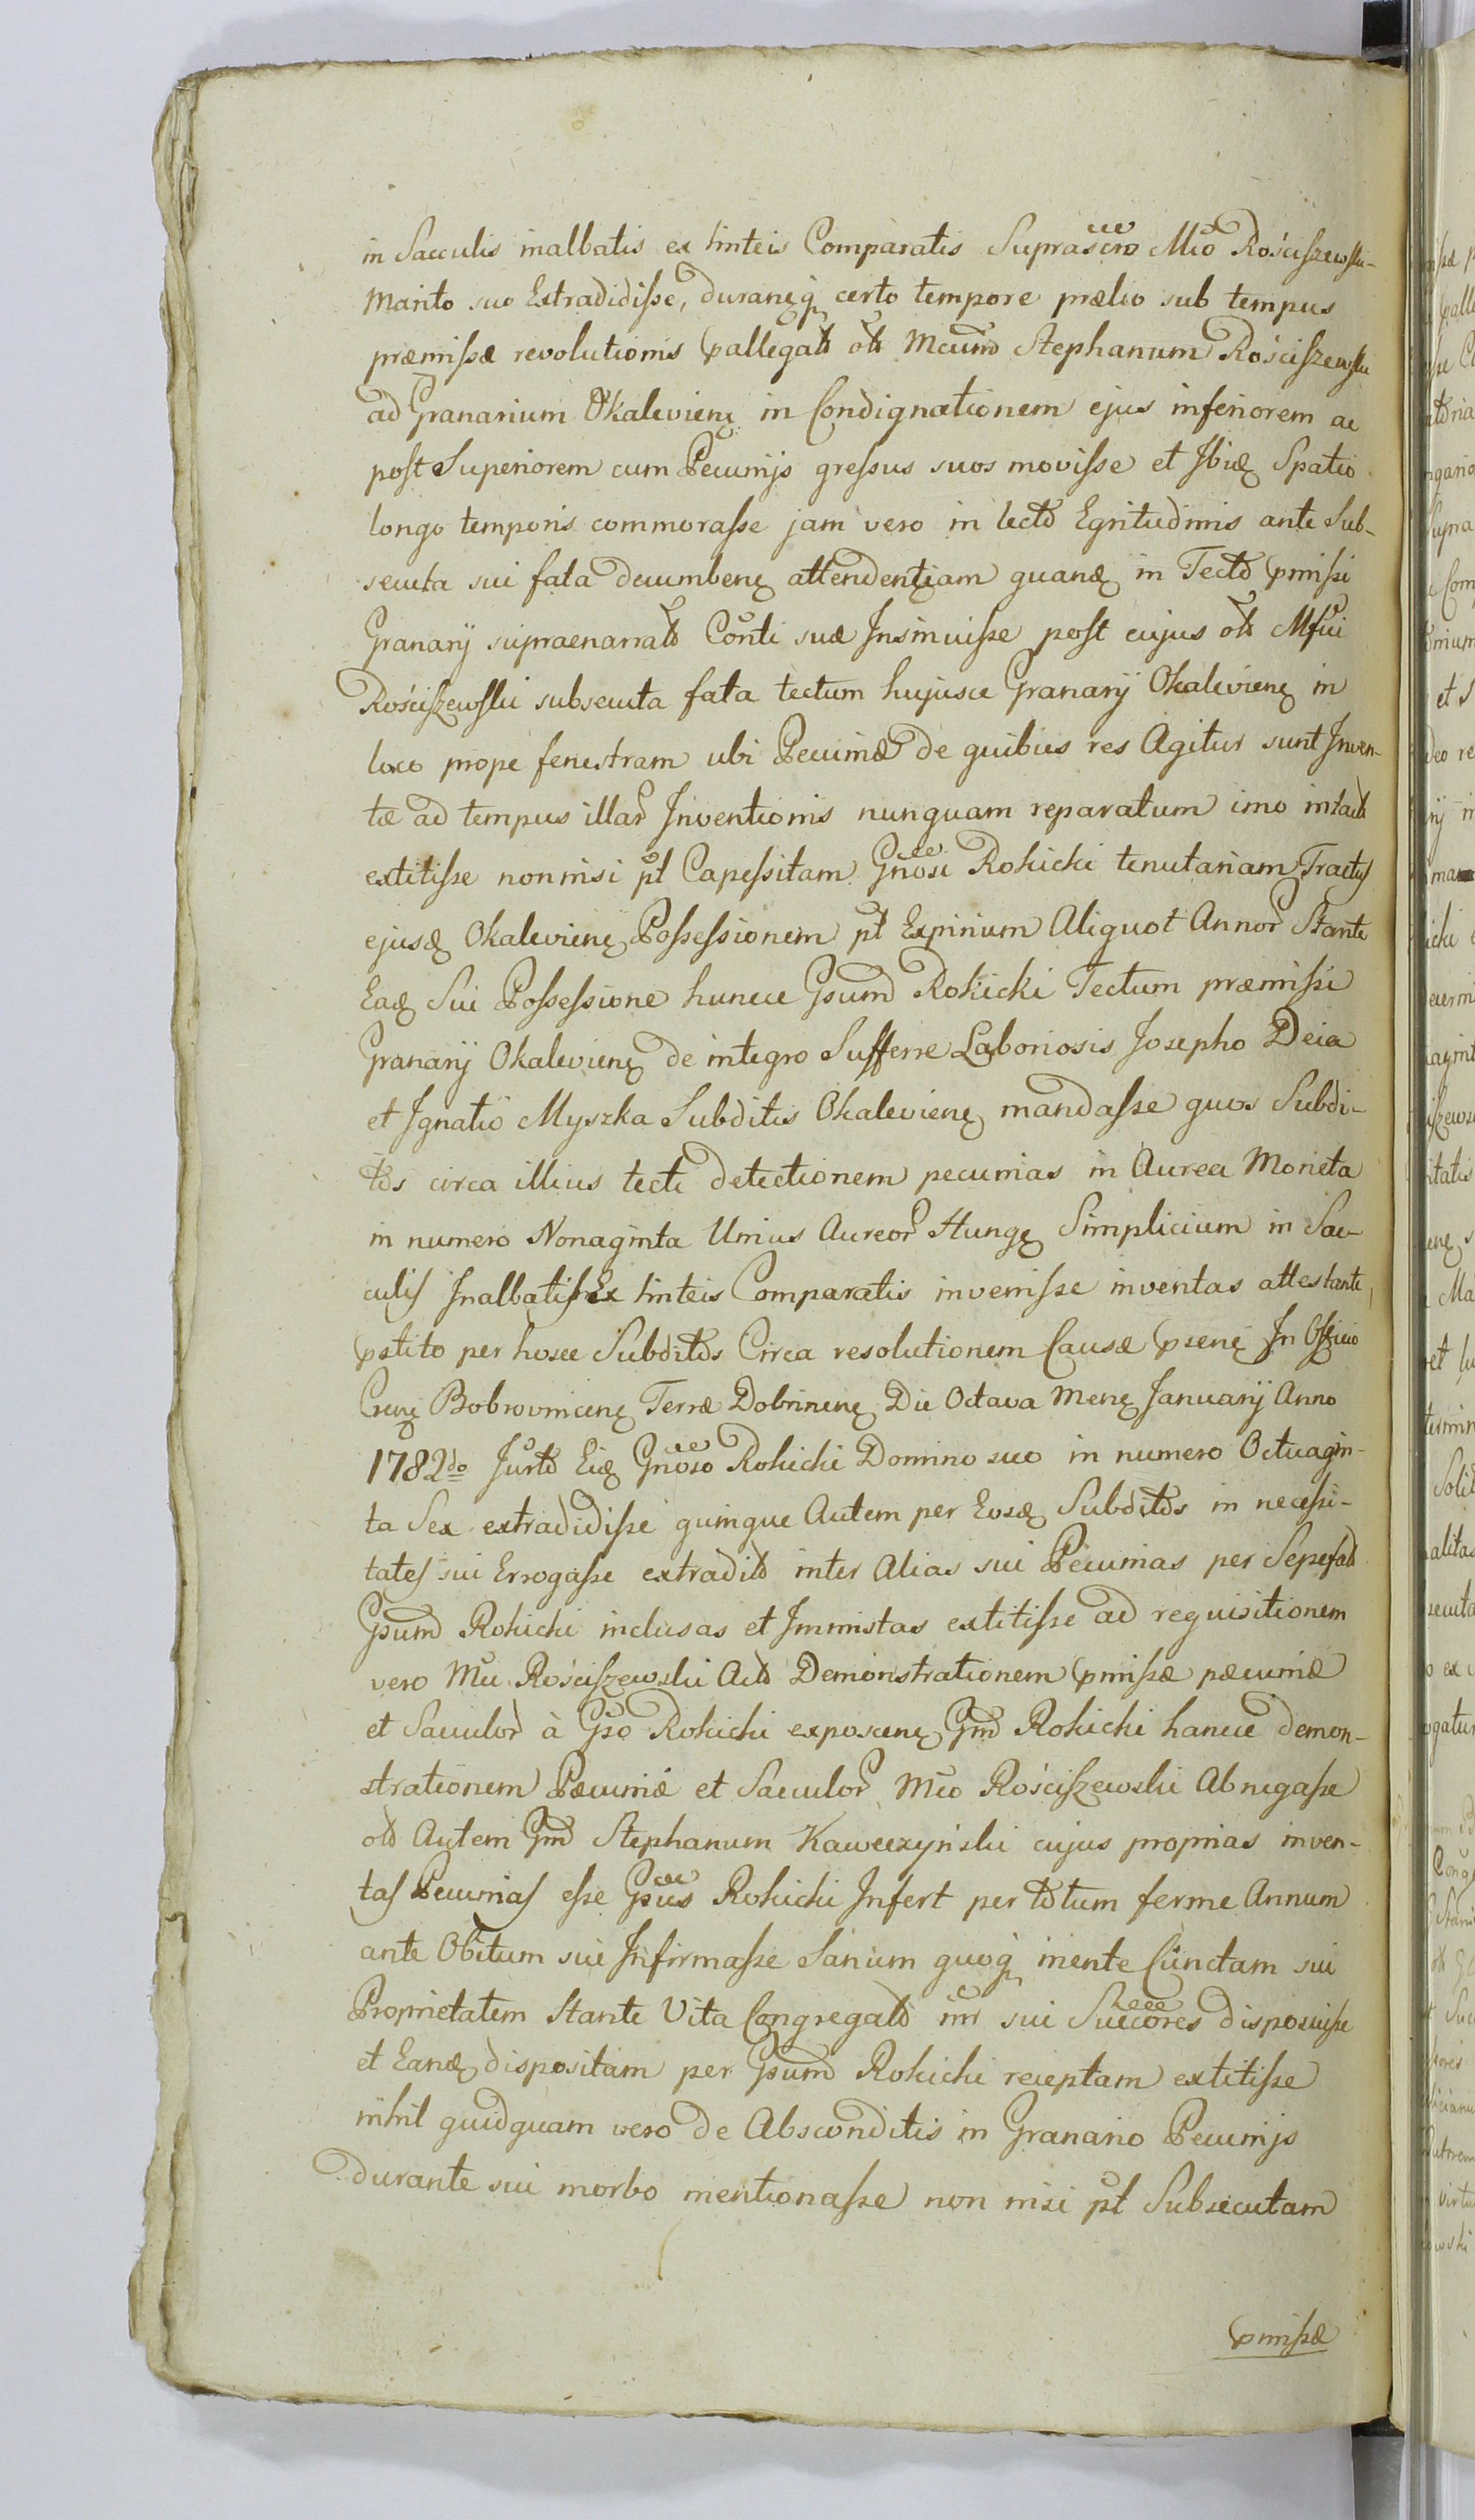 in Sacculis inalbatis ex linteis Comparatis Suprascrō Mīo Rościszewski
Marito suo Extradidisse, duranęq́ certo tempore prælio sub tempus
præmissæ revolutionis pallegatō otō Mcum Stephanum Rościszewski
ad Granarium Okalevienę in Condignationem ejus inferiorem ac
post Superiorem cum Pecunijs gressus suos movisse et Ibidę Spatio
longo temporis commorasse jam vero in lecto Egritudinis ante Sub-
secuta sui fata decumbenę attendentiam quandę in Tecto pmissi
Granarij supraenarrato Conti suæ Insinuisse post cujus oto Mfici
Rościszewski subsecuta fata tectum hujusce Granarij Okalevienę in
loco prope fenestram ubi Pecuniæ de quibus res Agitur sunt Inven-
tæ ad tempus illar Inventionis nunquam reparatum imo intacto
extitisse nonnisi pt Capessitam Gnosi Rokicki tenutariam Tractus
ejusdę Okalevienę Possessionem pt Expirium Aliquot Annor Stante
Eadę Sui Possessione huncce Gsum Rokicki Tectum præmissi
Granarij Okalevienę de integro Sufferre Laboriosis Josepho Deia
et Ignatio Myszka Subditis Okalevienę mandasse quos Subdi-
tos circa illius tecti detectionem pecunias in Aurea Moneta
in numero Nonaginta Unius Aureor Hungę Simplicium in Sac-
culis Inalbatis Ex linteis Comparatis invenisse inventas attestante
pstito per hosce Subditos Circa resolutionem Causæ psenę In Officio
Crenę Bobrovnicenę Terræ Dobrinenę Die Octava Menę Januarij Anno
1782do Jurto Eidę Gnoso Rokicki Domino suo in numero Octuagin-
ta Sex extradidisse quinque Autem per Eosdę Subditos in necessi-
tates sui Errogasse extradito inter Alias sui Pecunias per Sepefato
Gsum Rokicki inclusas et Immistas extitisse ad requisitionem
vero Mci Rościszewski Acto Demonstrationem pmissæ pæcuniæ
et Sacculor à Gso Rokicki exposcenę Gm Rokicki hancce demon-
strationem Pæcuniæ et Sacculor Mco Rościszewski Abnegasse
oto Autem Gm Stephanum Kaweczyński cujus proprias inven-
tas Pecunias esse Gsus Rokicki Infert per totum ferme Annum
ante Obitum sui Infirmasse Sanum quoq́ mente Cunctam sui
Proprietatem Stante Vita Congregato inr sui Succores disposuisse
et Eandę dispositam per Gsum Rokicki receptam extitisse
nihil quidquam vero de Absconditis in Granario Pecunijs
durante sui morbo mentionasse non nisi pt Subsecutam
pmissæ